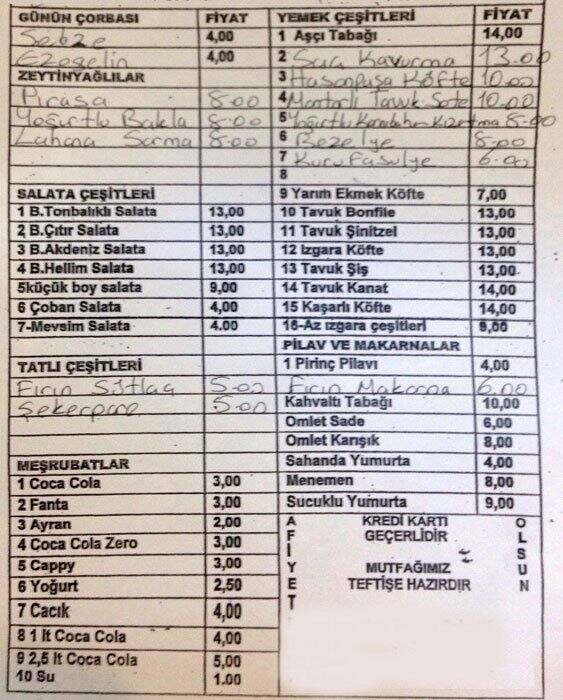 GÜNÜN ÇORBASI FİYAT
Sebze 4,00
Ezogelin 4,00
ZEYTİNYAĞLILAR
Pırasa 8.00
Yoğurtlu Bakla 8.00
Lahana Sarma 8.00
SALATA ÇEŞİTLERİ
1 B.Tonbalıklı Salata 13,00
2 B.Çıtır Salata 13,00
3 B.Akdeniz Salata 13,00
4 B.Hellim Salata 13,00
5küçük boy salata 9,00
6 Çoban Salata 4,00
7-Mevsim Salata 4.00
TATLI ÇEŞİTLERİ
Fırın Sütlaç 5.00
Şekerpare 5.00
MEŞRUBATLAR
1 Coca Cola 3,00
2 Fanta 3,00
3 Ayran 2,00
4 Coca Cola Zero 3,00
5 Cappy 3,00
6 Yoğurt 2,50
7 Cacık 4,00
8 1 lt Coca Cola 4,00
9 2,5 lt Coca Cola 5,00
10 Su 1.00
YEMEK ÇEŞİTLERİ FİYAT
1 Aşçı Tabağı 14,00
2 Saç Kavurma 13.00
3 Hasanpaşa Köfte 10.00
4 Mantarlı Tavuk Sote 10.00
5 Yoğurtlu Karnıbahar Kızartma 8.00
6 Bezelye 8.00
7 Kuru Fasulye 6.00
8
9 Yarım Ekmek Köfte 7,00
10 Tavuk Bonfile 13,00
11 Tavuk Şinitzel 13,00
12 Izgara Köfte 13,00
13 Tavuk Şiş 13,00
14 Tavuk Kanat 14,00
15 Kaşarlı Köfte 14,00
16-Az ızgara çeşitleri 9,00
PİLAV VE MAKARNALAR
1 Pirinç Pilavı 4,00
Fırın Makarna 6.00
Kahvaltı Tabağı 10,00
Omlet Sade 6,00
Omlet Karışık 8,00
Sahanda Yumurta 4,00
Menemen 8,00
Sucuklu Yumurta 9,00
AFİYET
KREDİ KARTI
GEÇERLİDİR
MUTFAĞIMIZ
TEFTİŞE HAZIRDIR
OLSUN